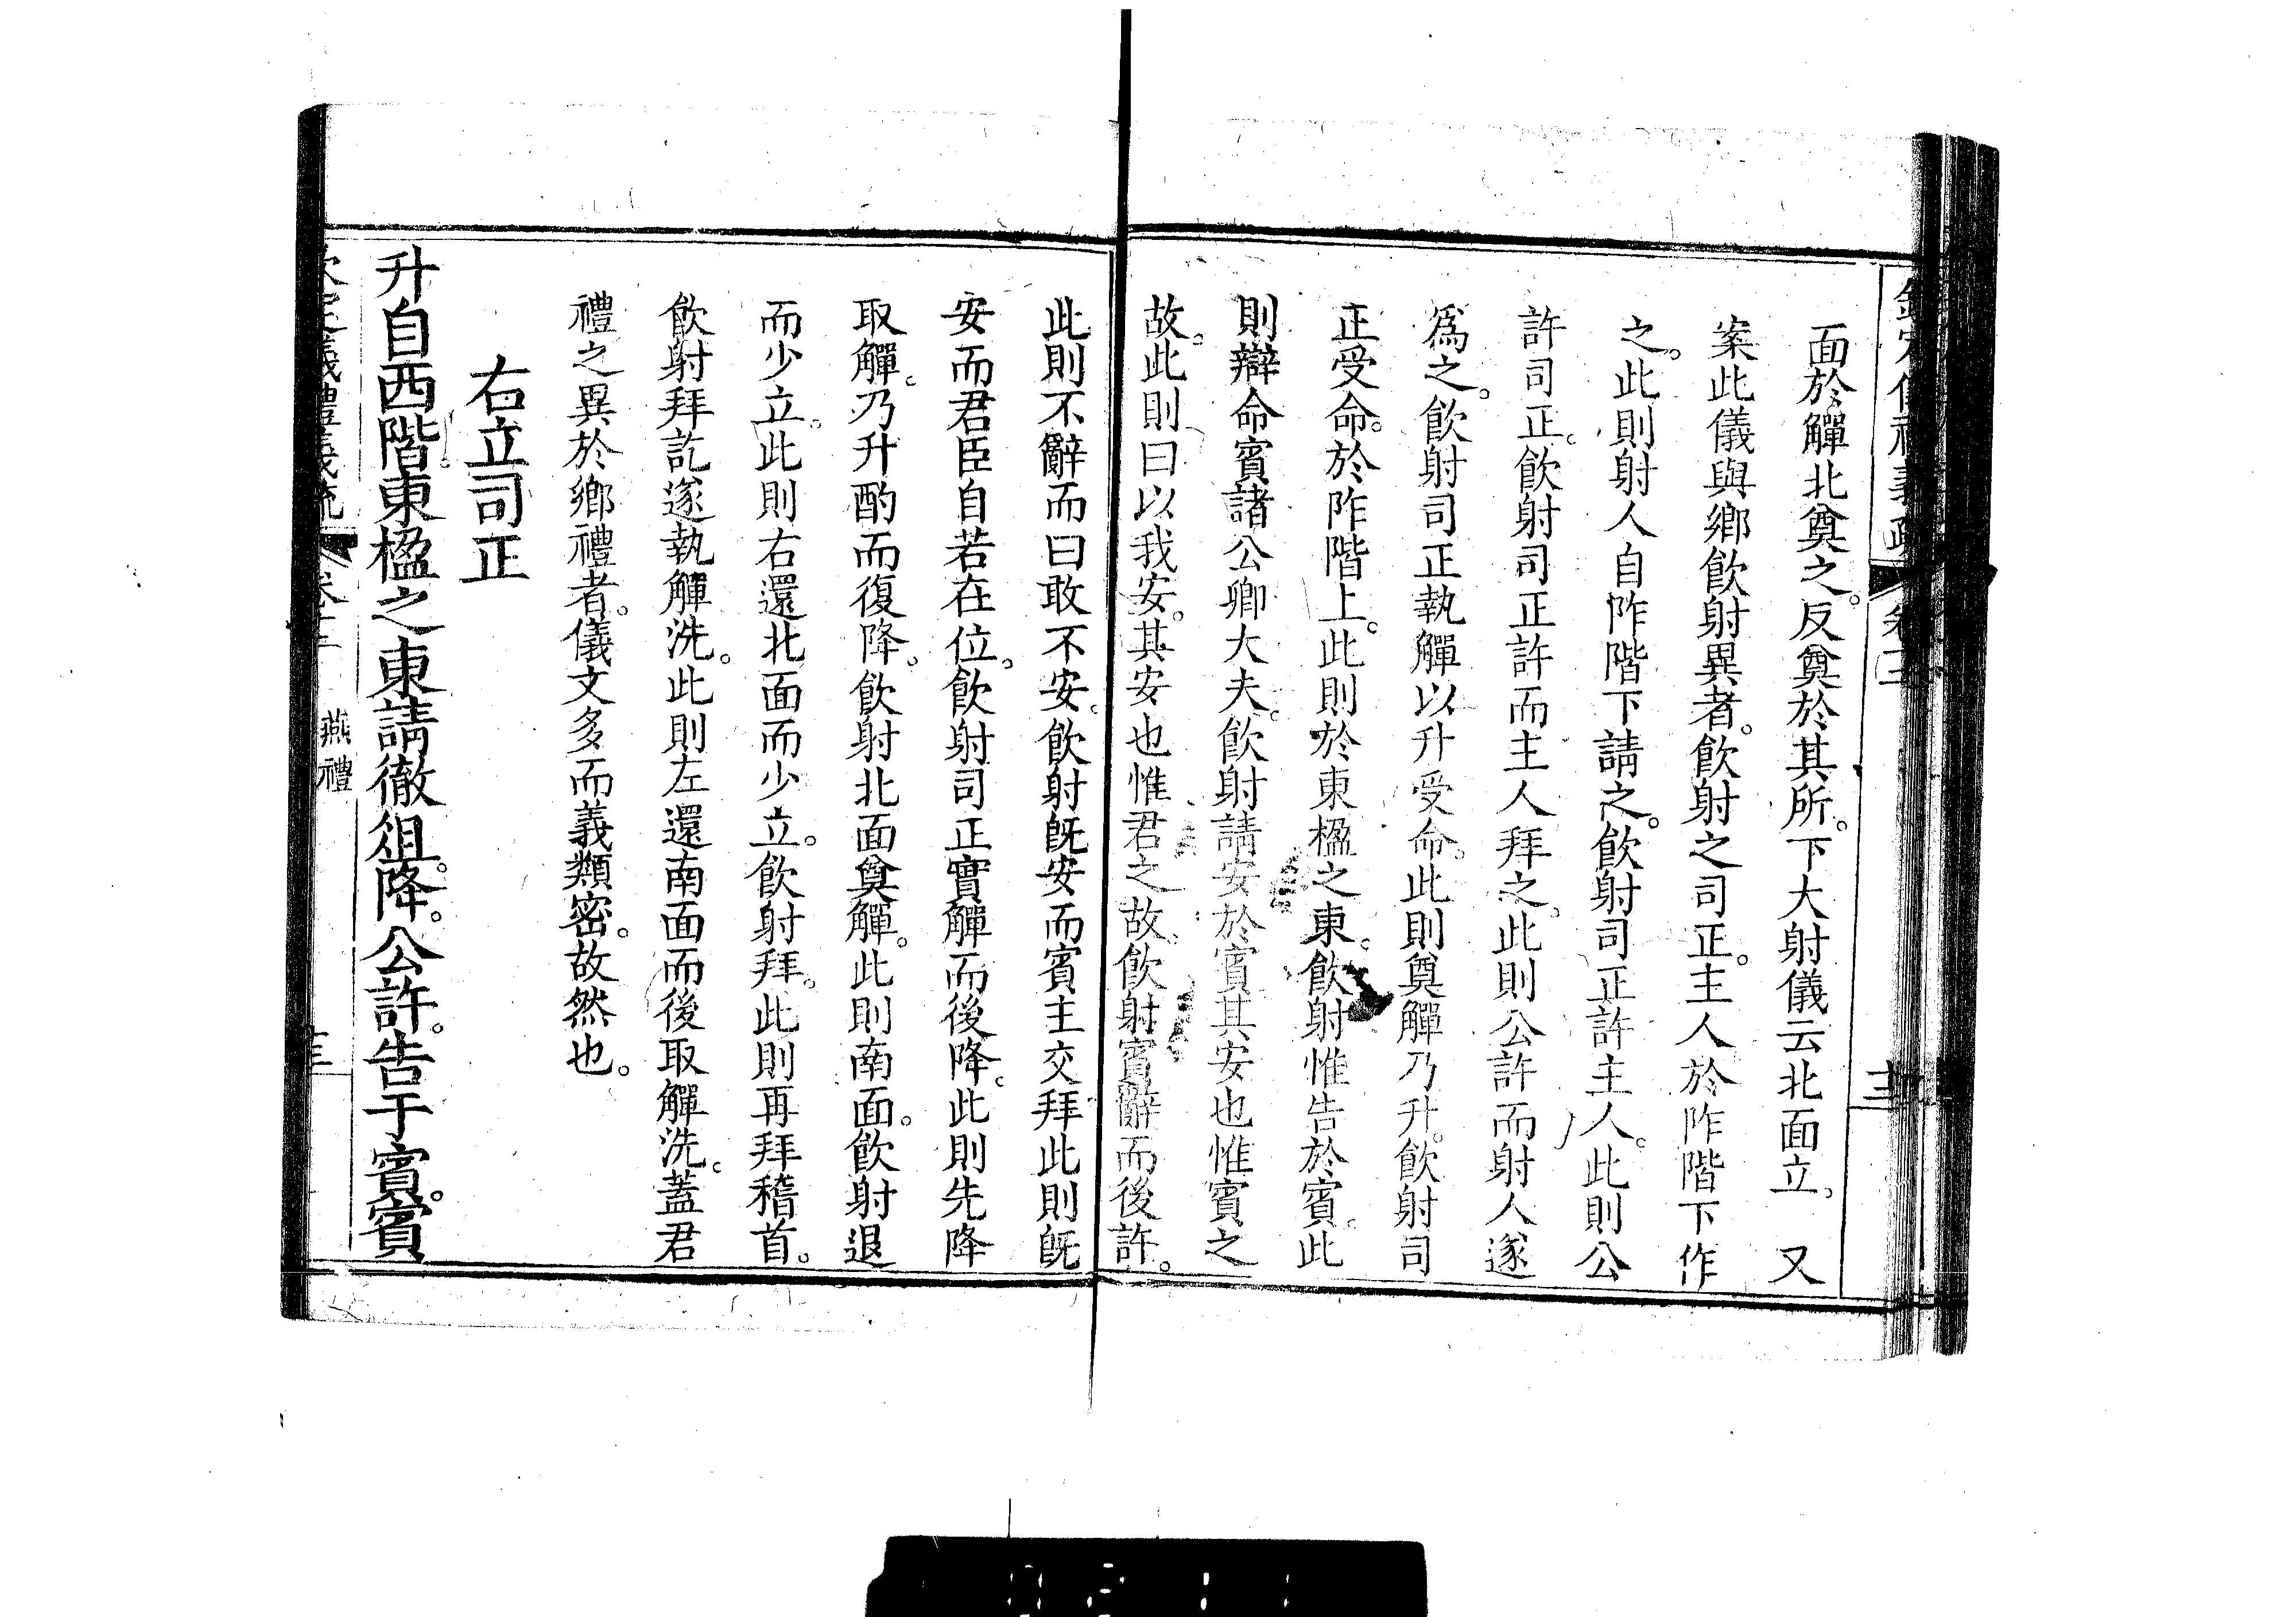 面於觶北奠之。反奠於其所。下大射儀云北面立。　又
案此儀與鄉飲射異者。飲射之司正。主人於阼階下作
之。此則射人自阼階下請之。飲射司正許主人。此則公
許司正。飲射司正許而主人拜之。此則公許而射人遂
爲之。飲射司正執觶以升受命。此則奠觶乃升。飲射司
正受命。於阼階上。此則於東楹之東。飲射惟告於賓。此
則辯命賓諸公卿大夫。飲射請安於賓其安也惟賓之
故。此則曰以我安。其安也惟君之故。飲射賓辭而後許。
此則不辭而曰敢不安。飲射旣安而賓主交拜此則旣
安而君臣自若在位。飲射司正實觶而後降。此則先降
取觶。乃升酌而復降。飲射北面奠觶。此則南面。飲射退
而少立。此則右還北面而少立。飲射拜。此則再拜稽首。
飲射拜訖遂執觶洗。此則左還南面而後取觶洗。蓋君
禮之異於鄉禮者。儀文多而義類密。故然也。
右立司正
升自西階東楹之東請徹俎降。公許。告于賓。賓
欽定儀禮義疏　卷十二　燕禮　十三